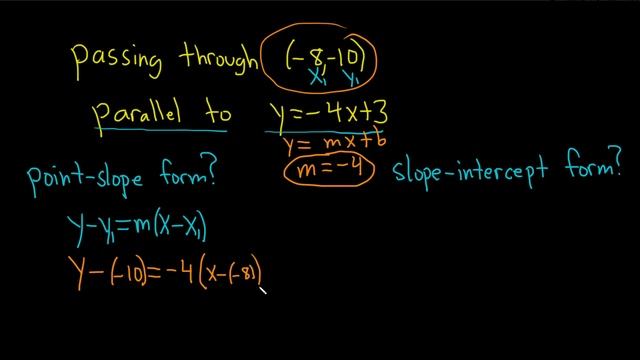 passing through (-8,-10)
x₁ y₁
parallel to y=-4x+3
y= mx+b
point-slope form? m=-4 slope-intercept form?
y-y₁=m(x-x₁)
y-(-10)=-4(x-(-8))